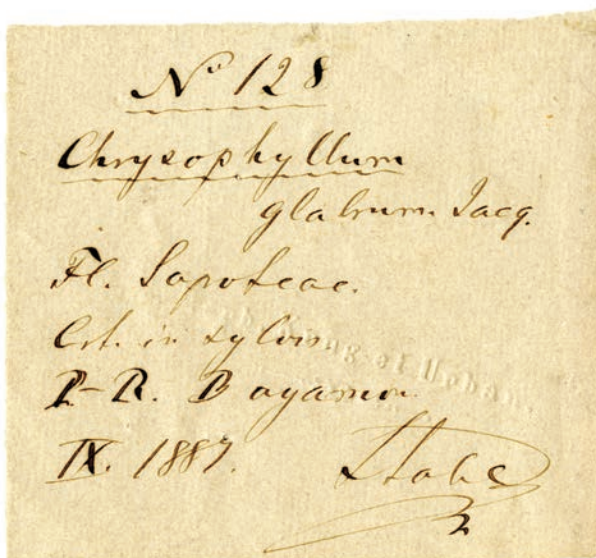 No 128
Chrysophyllum
glabrum. Jacq.
Fl. Sapoteae.
Crt. in sylvis
P-R. Bayamon.
IX. 1887.
Stahl
Krug et Urban.